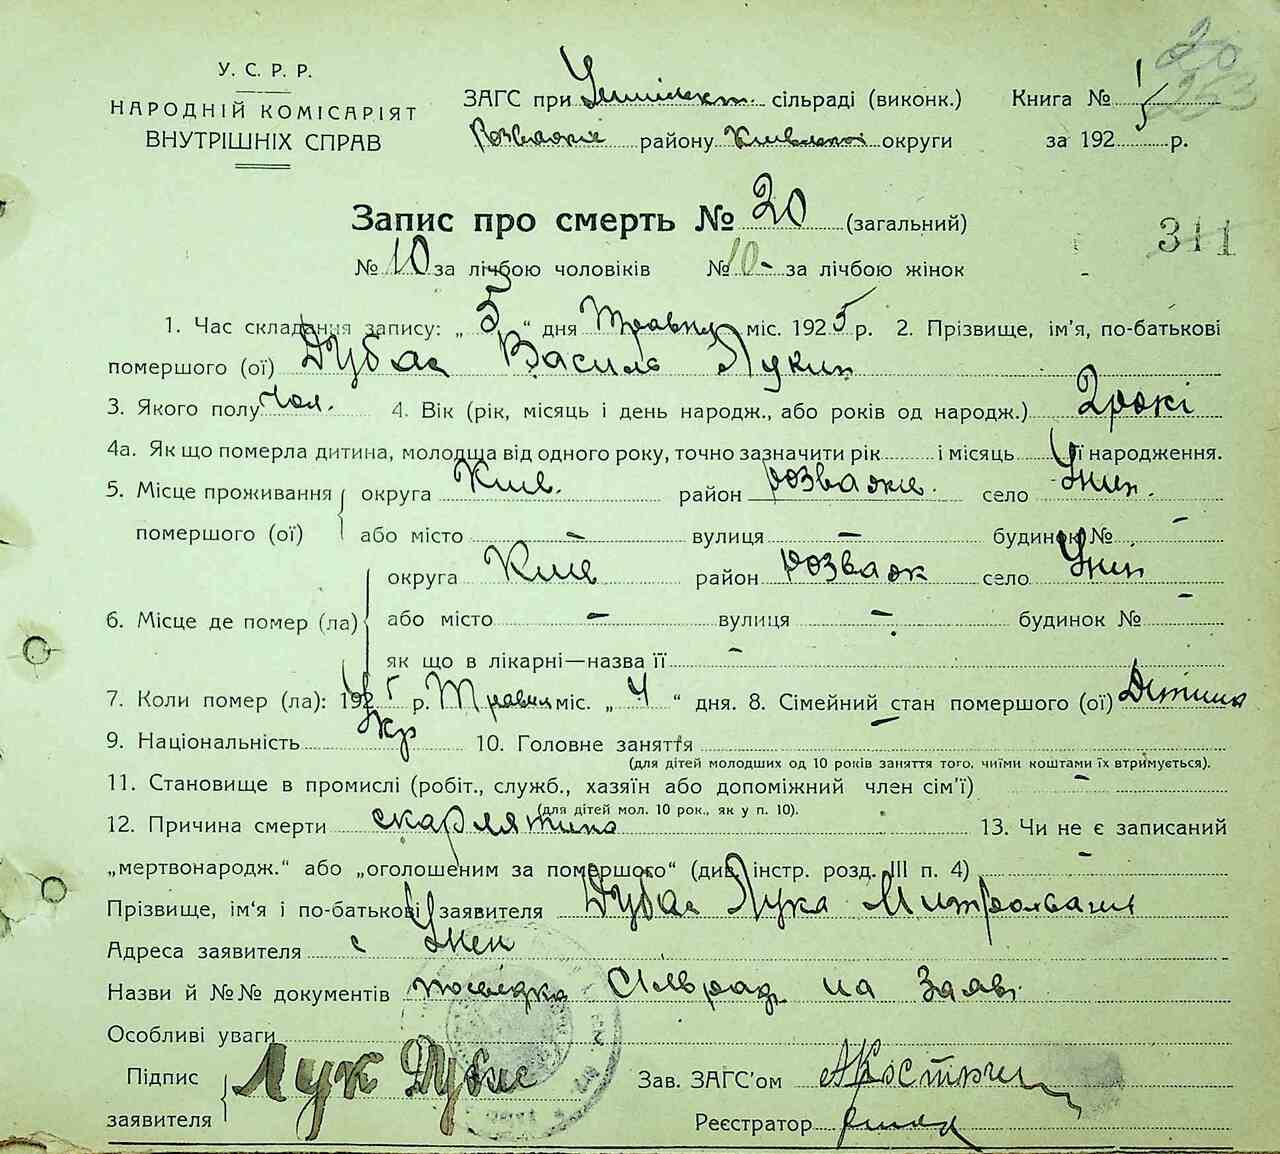 20
263
У. С. Р. Р.
НАРОДНІЙ КОМІСАРІЯТ
ВНУТРІШНІХ СПРАВ
ЗАГС при сільраді (виконк.)
Розважів району Київської округи
Книга № 1
за 1925 р.
Запис про смерть № 20 (загальний)
311
№ 10 за лічбою чоловіків № 10 - за лічбою жінок
1. Час складання запису: „ 5 “ дня Травня міс. 1925 р. 2. Прізвище, ім'я, по-батькові
помершого (ої) Дубас Василь Лукин
3. Якого полу Чол. 4. Вік (рік, місяць і день народж., або років од народж.) 2 рокі
4а. Як що померла дитина, молодща від одного року, точно зазначити рік і місяць її народження.
5. Місце проживання округа Київ. район розважів. село Унин.
помершого (ої) або місто - вулиця - будинок № -
округа Київ район розваж село Унин
6. Місце де помер (ла) або місто - вулиця - будинок № -
як що в лікарні—назва її -
7. Коли помер (ла): 1925 р. Травня міс. „ 4 “ дня. 8. Сімейний стан помершого (ої) Дітина
9. Національність Укр 10. Головне заняття -
(для дітей молодших од 10 років заняття того, чиїми коштами їх втримується).
11. Становище в промислі (робіт., служб., хазяїн або допоміжний член сім'ї) -
(для дітей мол. 10 рок., як у п. 10).
12. Причина смерти скарлятина 13. Чи не є записаний
„мертвонародж.“ або „оголошеним за помершого“ (див. інстр. розд. III п. 4) -
Прізвище, ім'я і по-батькові заявителя Дубас Лука Митрохванів
Адреса заявителя с Унин
Назви й №№ документів посвідка Сільрад на Заяві
Особливі уваги
Підпис
заявителя Лук Дубас
Зав. ЗАГС'ом
Реєстратор